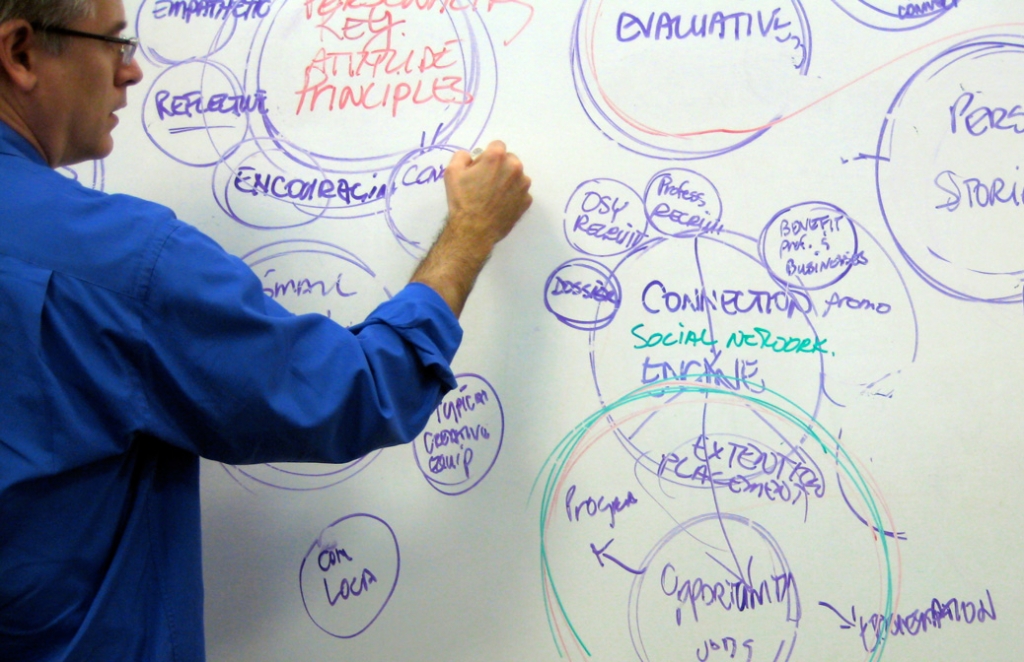 EMPATHETIC
REFLECTIVE
KEY.
ATTITUDE
PRINCIPLES
ENCOURAGIN
CON
SMALL
TYPICAL
CREATIVE
EQUIP
COM
LOCA
EVALUATIVE
CONNECT
PERS
STORI
RECRUIT
PROFESS.
RECRUIT
BENEFIT
PROF. &
BUSINESSES
DOSSIER
CONNECTION
SOCIAL NETWORK.
ENGINE
EXTENTION
PLACEMENT
PROGRAM
OPPORTUNITY
JOBS